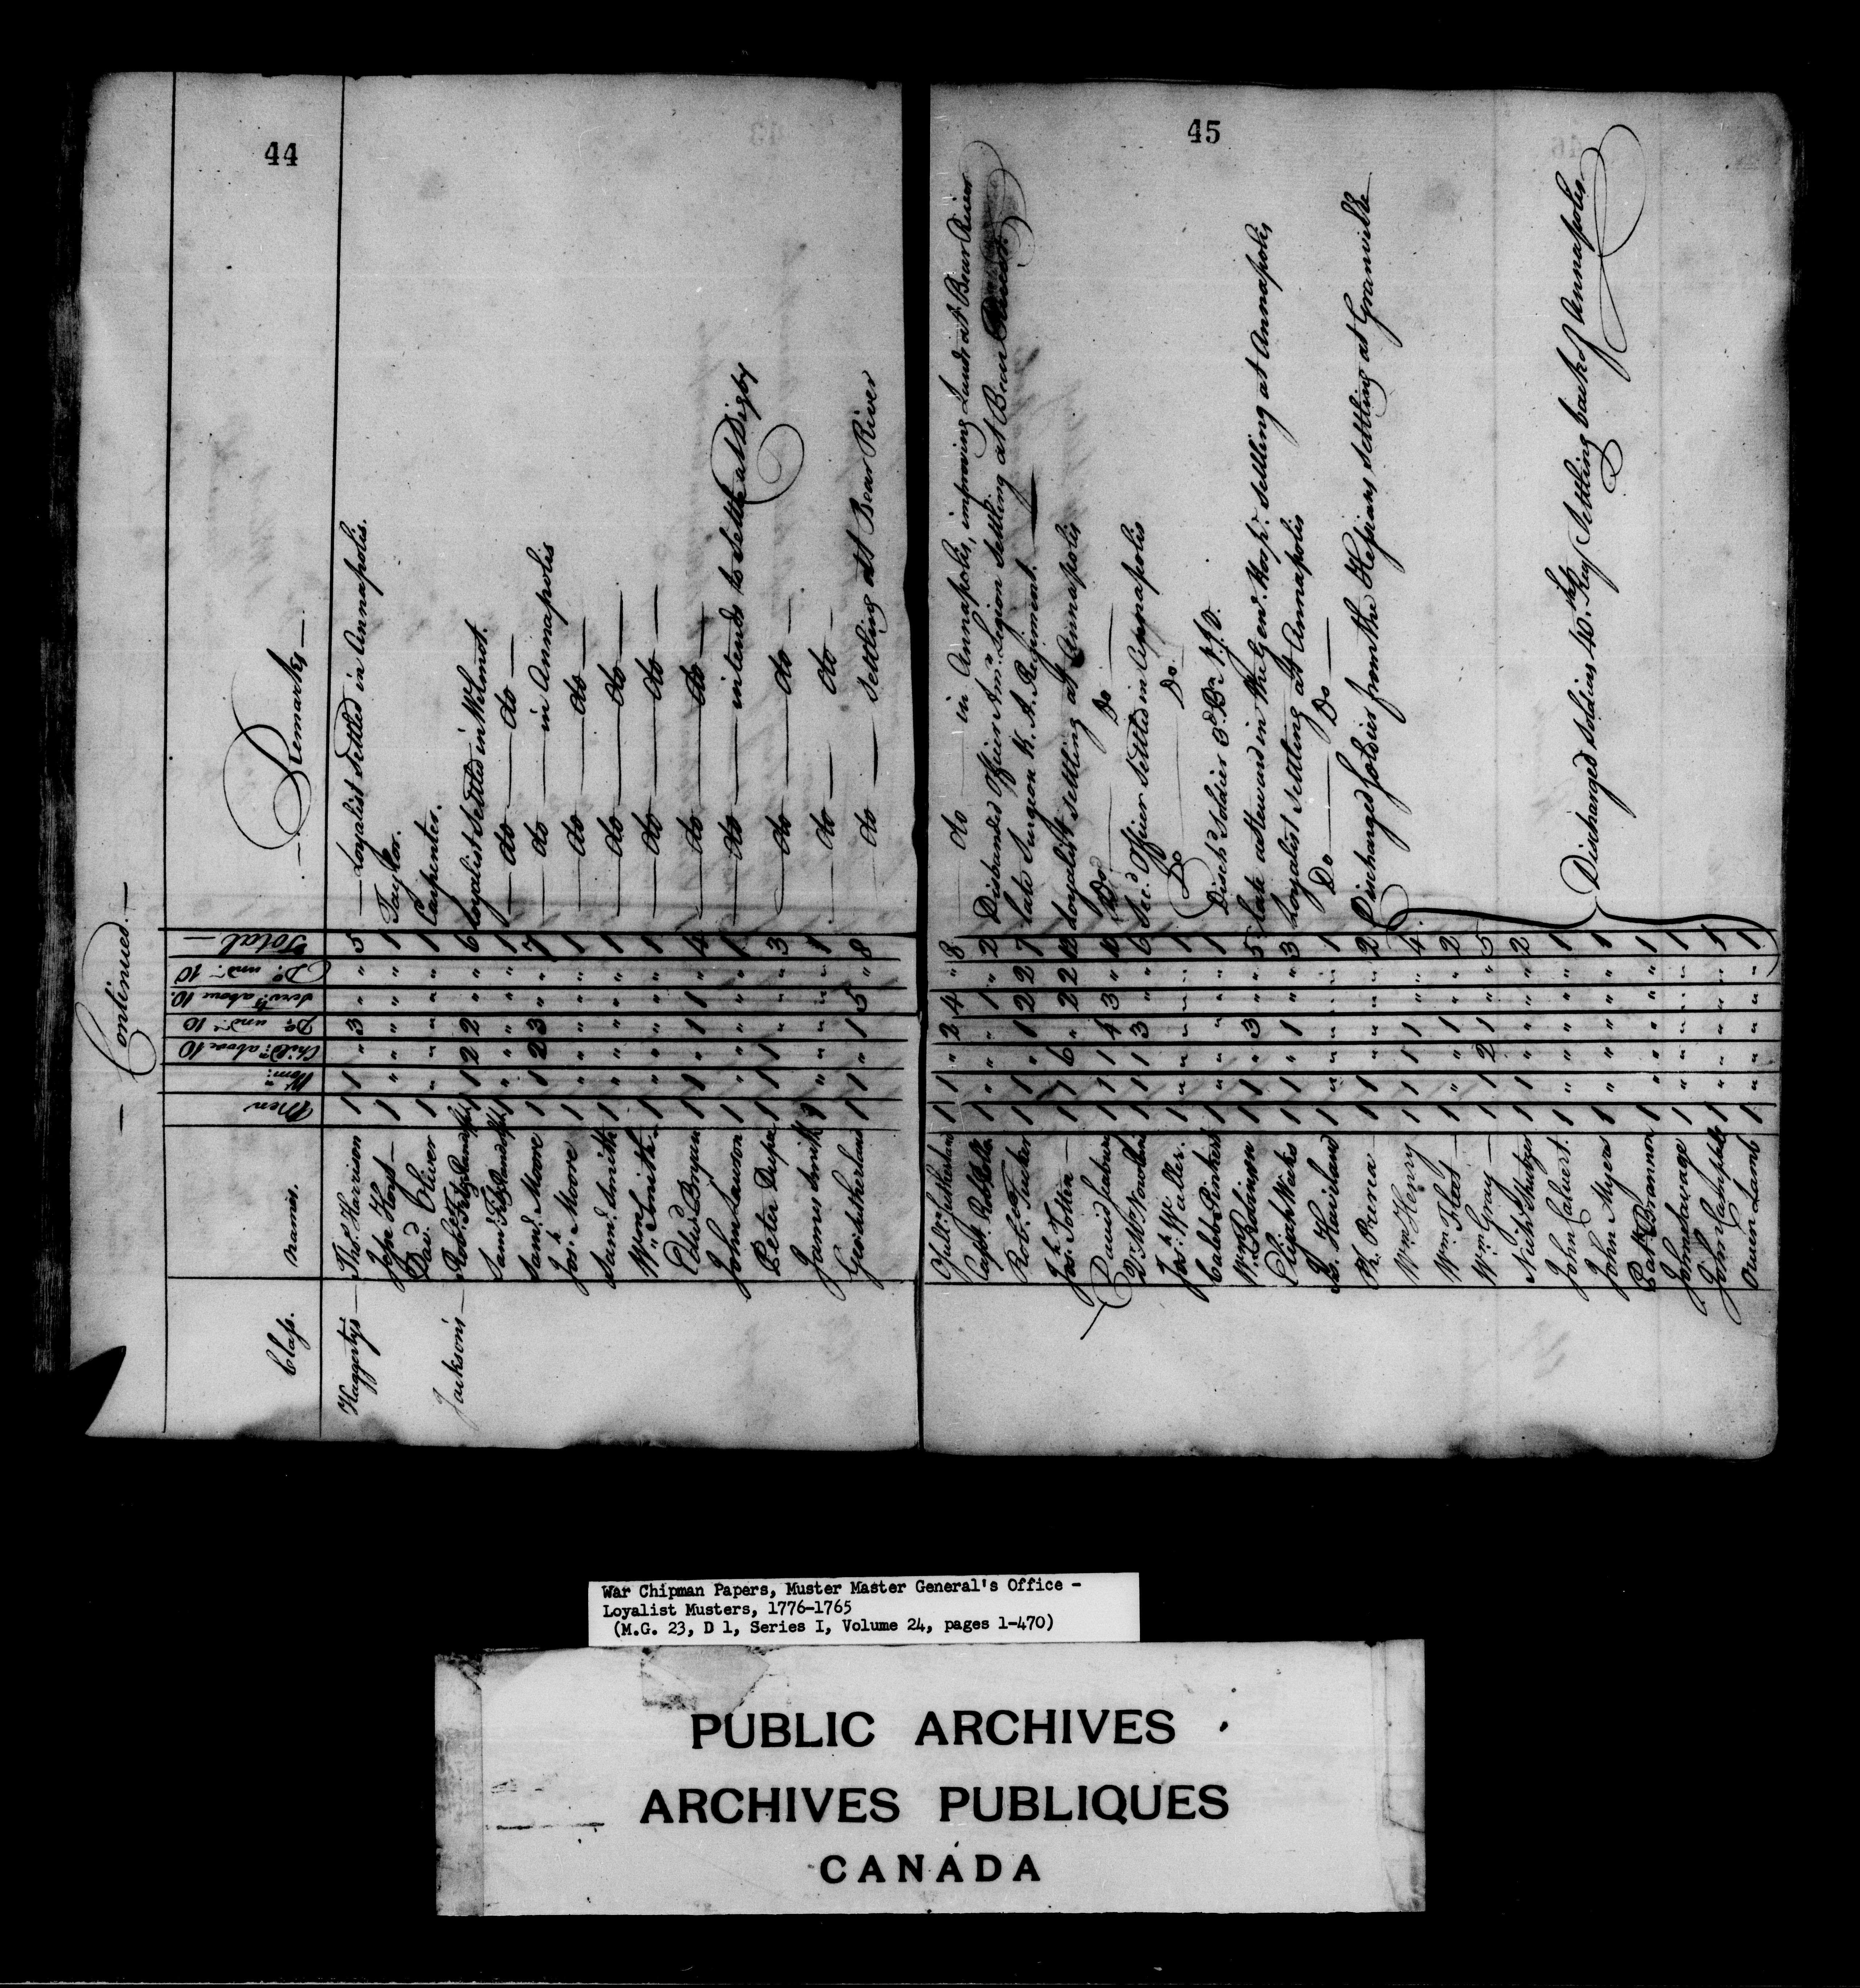 44
— Continued. —
Class. Names. Men Wom:n Child:n above 10 Do und:r 10 Serv:ts above 10. Do und:r 10 Total — — Remarks —
Haggerty's — Tho:s Harrison 1 1 " 3 " " 5 — Loyalist Settled in Annapolis.
Jesse Hoyt — 1 " " " " " 1 Taylor.
Dav:d Oliver 1 " " " " " 1 Carpenter.
Jackson's — Rob:t Fitzrandolph 1 1 2 2 " " 6 Loyalist Settled in Wilmot.
Sam:l Fitzrandolph 1 " " " " " 1 — do — do —
Sam:l Moore 1 1 2 3 " " 7 — do — in Annapolis
Jos:h Moore 1 " " " " " 1 — do — do —
Sam:l Smith 1 " " " " " 1 — do — do —
W:m Smith 1 " " " " " 1 — do — do —
Edw:d 1 1 1 " 1 " 4 — do — do —
John Lawson 1 " " " " " 1 — do — intends to settle at Digby
Peter 1 1 1 " " " 3 — do — do —
James Smith 1 " " " " " 1 — do — do —
Geo: Sutherland 1 1 " 1 5 " 8 do — Settling at Bear River
45
Sutherland 1 1 " 2 4 " 8 do — in Annapolis, improving Lands at Bear River
Cap:t 1 " " " 1 " 2 Disbanded Officer Am:n Legion Settling at Bear River.
Rob:t Tucker 1 1 " 1 2 2 7 late Surgeon N. A. Regiment. —
Jos:h Totten — 1 1 6 " 2 2 12 Loyalist settling at Annapolis
David Seabury 1 1 1 4 3 " 10 Do — Do —
1 1 1 3 " " 6 Officer Settled in Annapolis
1 " " " " " 1 Do — Do
Caleb Pinkers 1 " " " " " 1 Disch:d Soldier 3:d B:n N.J.V.
W:m Robinson 1 1 " 3 " " 5 late a Steward in the Gen:l Hosp:l settling at Annapolis
Elijah Weeks 1 1 " 1 " " 3 Loyalist Settling at Annapolis
Haviland 1 " " " " " 1 Do — Do —
Prena — 1 1 " " " " 2 Discharged Soldier from the Hessians Settling at Granville
W:m Henry 1 1 1 1 " " 4
W:m — 1 " " 1 " " 2
W:m Gray — 1 1 2 1 " " 5
Nich:s 1 1 " " " " 2
John Calvert. 1 " " " " " 1 Discharged Soldiers 40:th Reg:t Settling back of Annapolis
John Myers 1 " " " " " 1
Pat:k Brannon 1 " " " " " 1
John Savage 1 " " " " " 1
John Campbell 1 " " " " " 1
Owen Lamb 1 " " " " " 1
War Chipman Papers, Muster Master General's Office -
Loyalist Musters, 1776-1765
(M.G. 23, D 1, Series I, Volume 24, pages 1-470)
PUBLIC ARCHIVES
ARCHIVES PUBLIQUES
CANADA